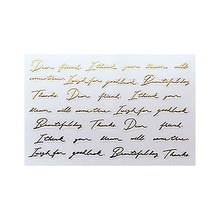 Dear friend I think your dream will
come true Wish for good luck Beautiful day
Thanks. Dear friend I think your
dream will come true Wish for good luck
Beautiful day Thanks. Dear friend
I think your dream will come true
Wish for good luck Beautiful day Thanks.